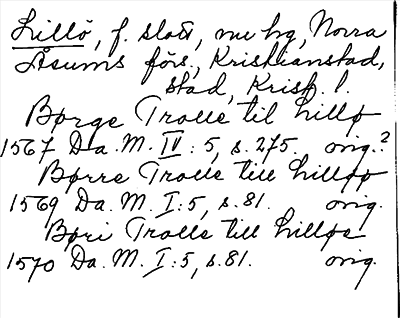 Lillö, f. slott, nu hg, Norra
Åsums förs., Kristianstad,
stad, Krist. l.
Børge Trolle til Lillø
1567 Da. M. IV: 5, s. 275. orig.?
Børre Trolle till Lilløø
1569 Da. M. I: 5, s. 81. orig.
Børi Trolle till Lilløs
1570 Da. M. I: 5, s. 81. orig.